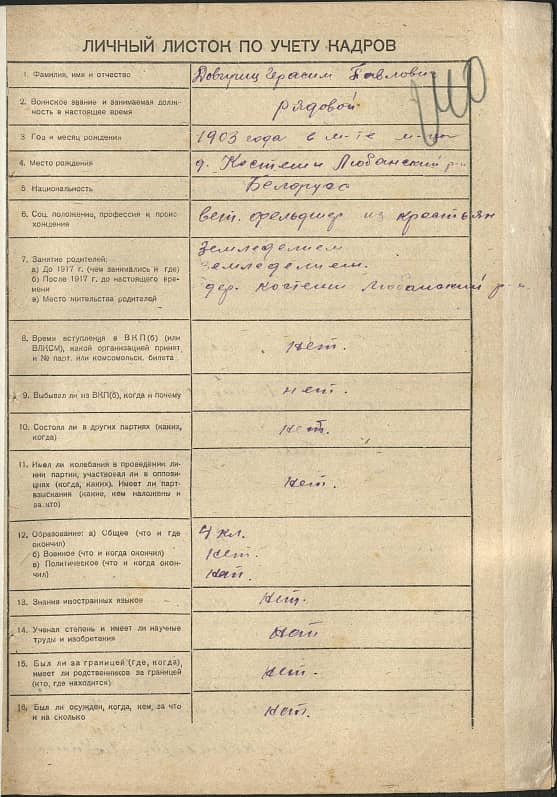 ЛИЧНЫЙ ЛИСТОК ПО УЧЕТУ КАДРОВ
1. Фамилия, имя и отчество
Герасим Павлович
2. Воинское звание и занимаемая долж-
ность в настоящее время
рядовой
3. Год и месяц рождения
1903 года в м-це
4. Место рождения
д. Костеши Любанский р-н
5. Национальность
Белорусс
6. Соц. положение, профессия и проис-
хождения
вет. фельдшер из крестьян
7. Занятие родителей:
а) До 1917 г. (чем занимались и где)
б) После 1917 г. до настоящего вре-
мени
в) Место жительства родителей
Земледелием
земледелием.
дер. Костеши Любанский р-н.
8. Время вступления в ВКП(б) (или
ВЛКСМ), какой организацией принят
и № парт. или комсомольск. билета
нет.
9. Выбывал ли из ВКП(б), когда и почему
нет.
10. Состоял ли в других партиях (каких,
когда)
нет.
11. Имел ли колебания в проведении ли-
нии партии, участвовал ли в оппози-
циях (когда, каких). Имеет ли парт-
взыскания (какие, кем наложены и
за что)
нет.
12. Образование: а) Общее (что и где
окончил)
б) Военное (что и когда окончил)
в) Политическое (что и когда окон-
чил)
4 кл.
нет.
нет.
13. Знания иностранных языков
нет.
14. Ученая степень и имеет ли научные
труды и изобретения
нет
15. Был ли за границей (где, когда),
имеет ли родственников за границей
(кто, где находится)
нет.
16. Был ли осужден, когда, кем, за что
и на сколько
нет.